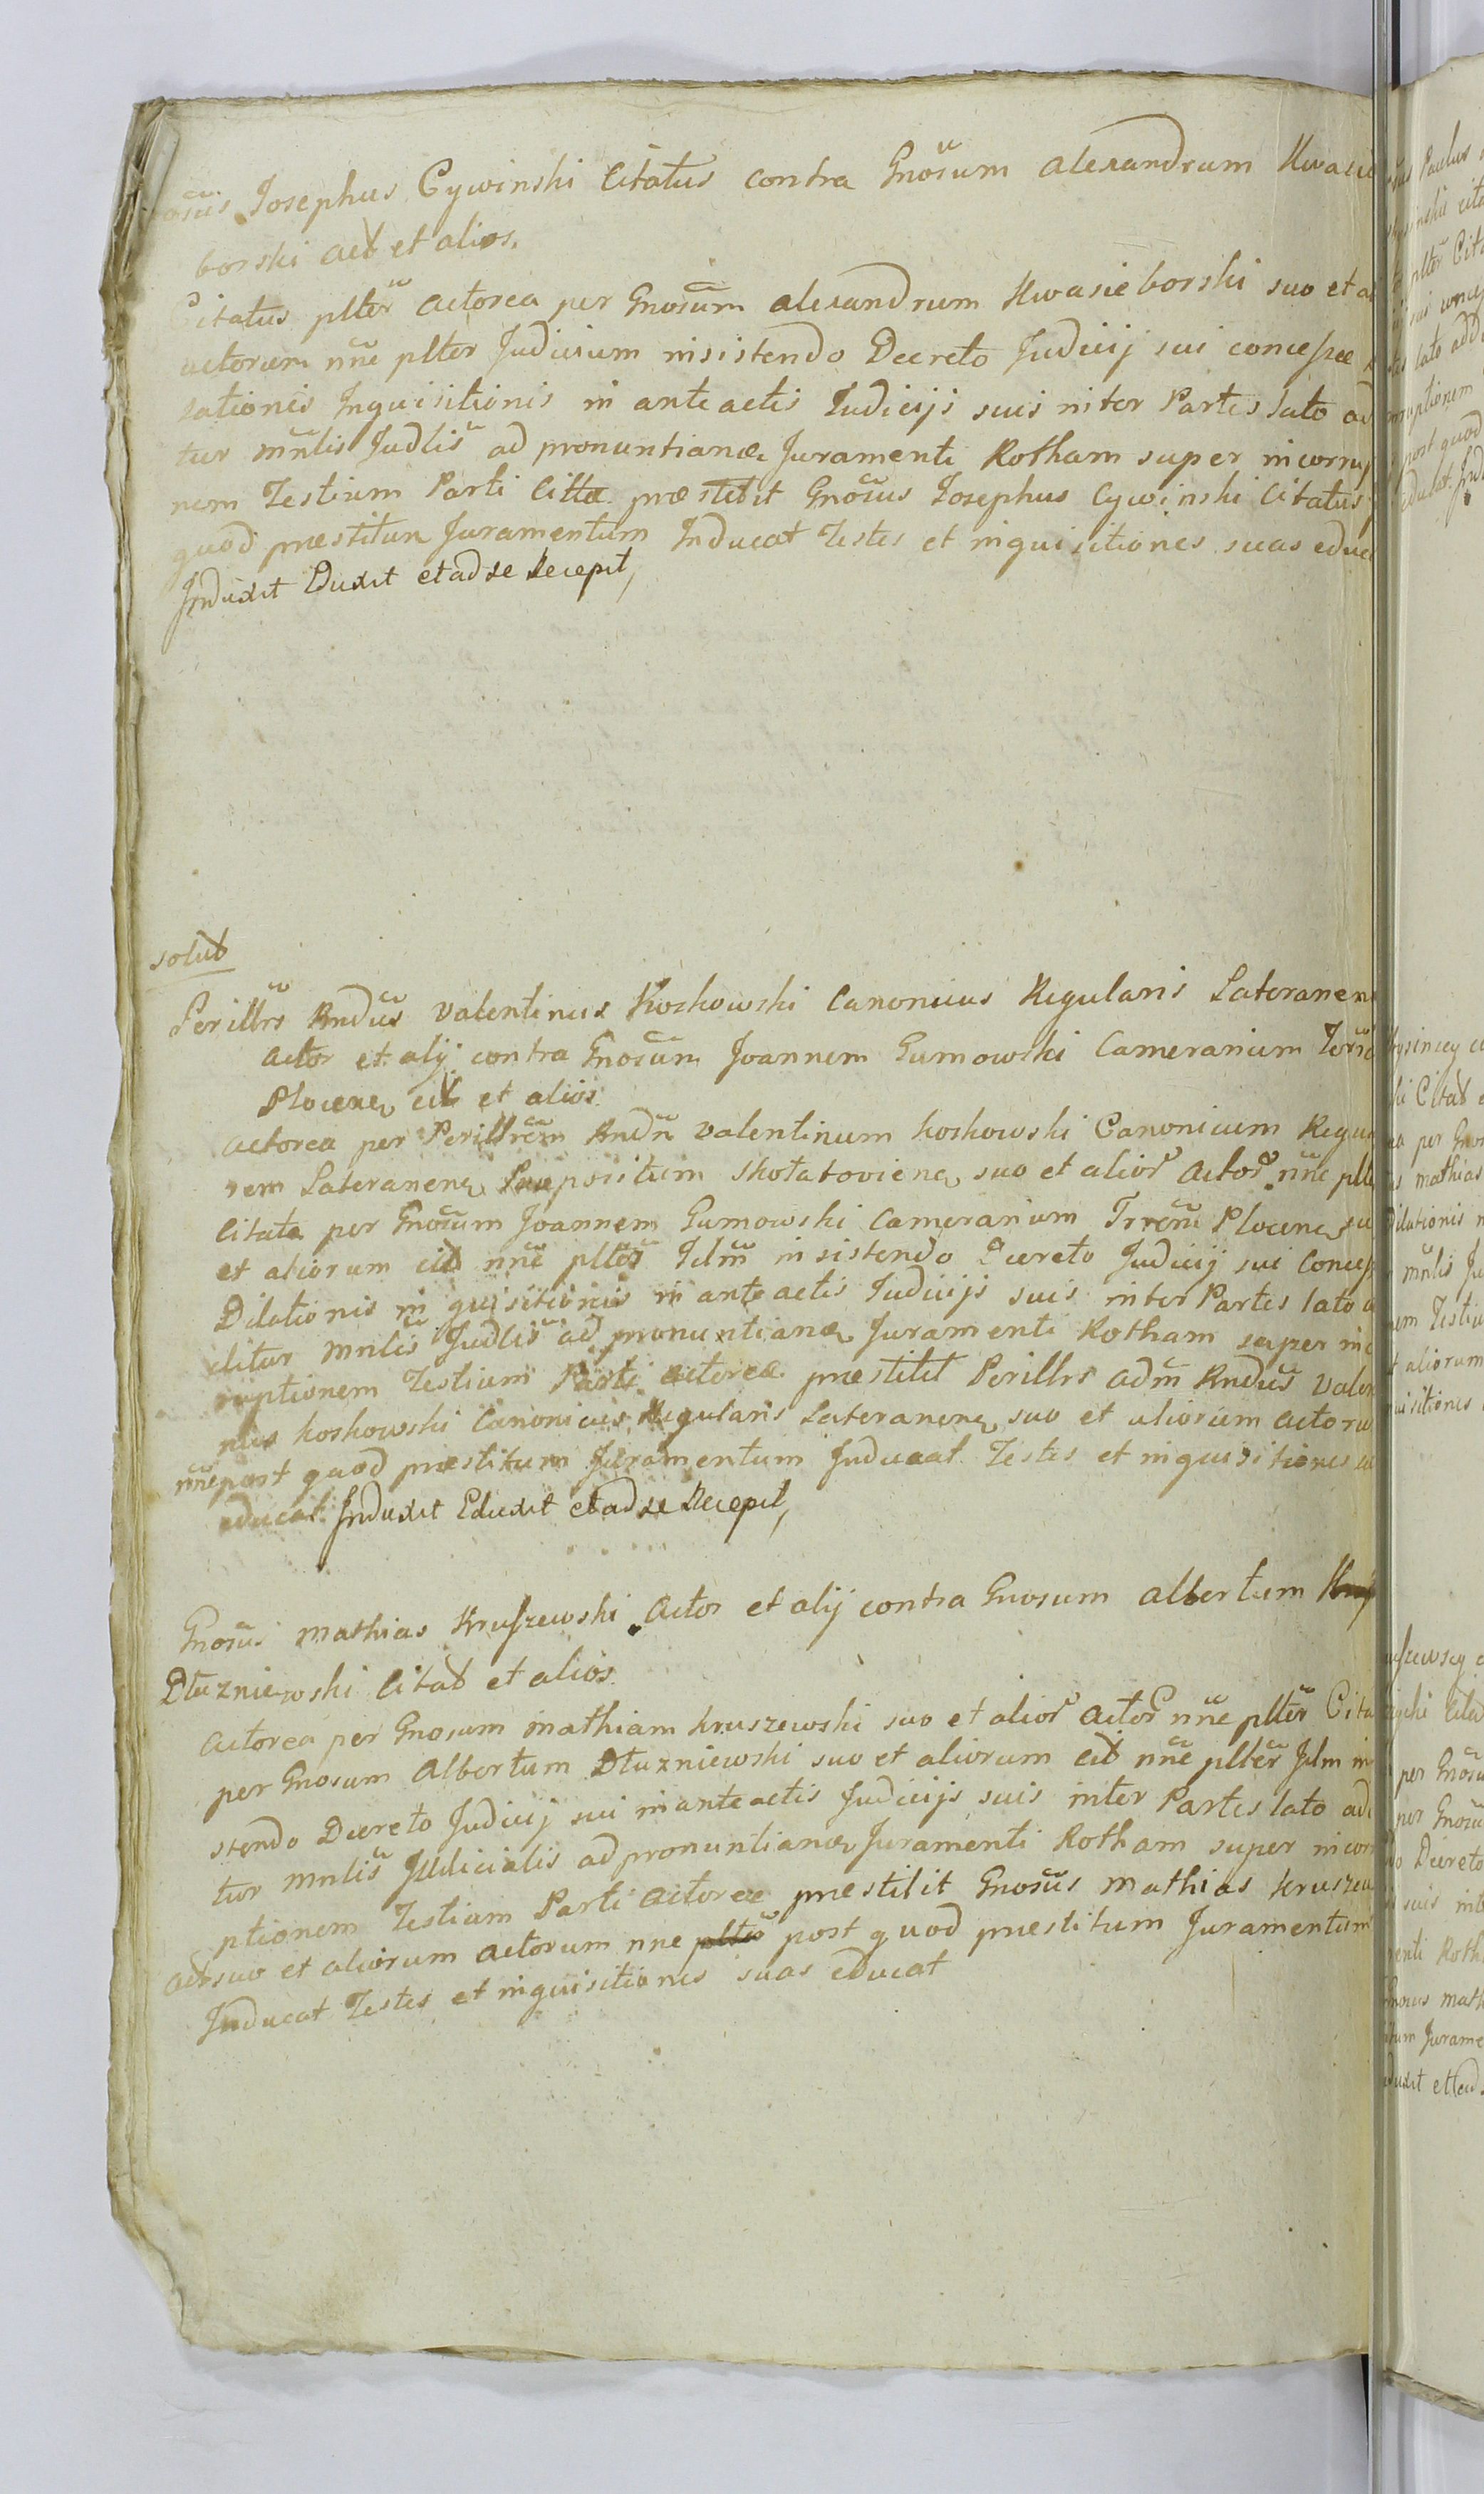 Josephus Cywinski Citatus contra Gnosum Alexandrum Kwasie
borski act et alios.
Citatus plter Actorea per Gnosum Alexandrum Kwasieborski suo et
actorum nne plter Judicium insistendo Decreto Judicij sui concessæ
lationis Inquisitionis in anteactis Judicijs suis inter Partes lato ad
tur mnlis Judlis ad pronuntianæ Juramenti Rotham super incorrup
nem Testium Parti Cittæ præstitit Gnosus Josephus Cywinski Citatus
quod præstitum Juramentum Inducat Testes et inquisitiones suas educ
Induxit Eduxit et ad se Recepit,
solut
Perillrs Rndus Valentinus Koskowski Canonicus Regularis Lateranen
Actor et alij contra Gnosum Joannem Gumowski Camerarium Terre
Plocen cit et alios.
Actorea per Perillrem Rndn Valentinum Koskowski Canonicum Regu
rem Lateranen Præpositum Skołatovien suo et alior Actor nne plt
Citata per Gnosum Joannem Gumowski Camerarium Trrenu Plocen su
et aliorum cit nne plter Jdm insistendo Decreto Judicij sui Concess
Dilationis inquisitionis in anteactis Judicijs suis inter Partes lato
ditur mnlis Judlis ad pronuntianæ Juramenti Rotham super inc
ruptionem Testium Parti Actoreæ præstitit Perillrs adm Rndus Valen
nus Koskowski Canonicus Regularis Lateranen suo et aliorum Actoru
nne post quod præstitum Juramentum Inducat Testes et inquisitiones
educat. Induxit Eduxit et ad se Recepit,
Gnosus Mathias Kruszewski Actor et alij contra Gnosum Albertum
Dłuzniewski Citat et alios.
Actorea per Gnosum Mathiam Kruszewski suo et alior Actor nne plter Cita
per Gnosum Albertum Dłuzniewski suo et aliorum cit nne plter Jdm in
stendo Decreto Judicij sui in anteactis Judicijs suis inter Partes lato adi
tur mnlis Judicialis ad pronuntianæ Juramenti Rotham super incorr
ptionem Testium Parti Actoreæ præstitit Gnosus Mathias Kruszew
Act suo et aliorum Actorum nne plter post quod præstitum Juramentum
Inducat Testes et inquisitiones suas educat